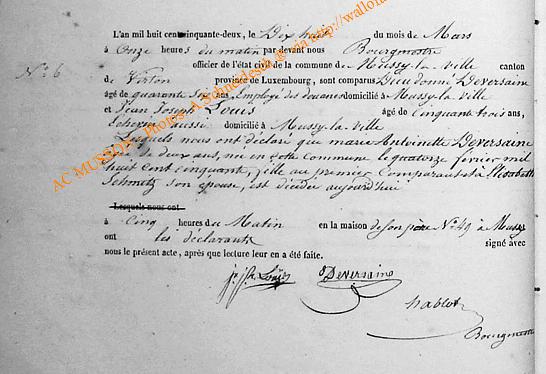 L'an mil huit cent cinquante-deux, le Dix huit du mois de Mars
à Onze heures du matin par devant nous Bourgmestre
officier de l'état civil de la commune de Mussy-la-ville canton
N.° 6
de Virton province de Luxembourg, sont comparus Dieudonné Deversaine
agé de quarante Six ans Employé des douanes domicilié à Mussy-la ville
et Jean Joseph Louis âgé de Cinquante trois ans,
Echevin aussi domicilié à Mussy-la-ville
Lesquels nous ont déclaré que marie Antoinette Deversaine
agée de deux ans, née en cette Commune le quatorze février mil
huit Cent Cinquante, fille au premier Comparant & à Elisabeth
Schmitz Son epouse, est décédée aujourd'hui
Lesquels nous ont
à Cinq heures du Matin en la maison de son père N° 49 à Mussy
ont les déclarants signé avec
nous le présent acte, après que lecture leur en a été faite.
Jn. Jph. Louis Deversaine
Nablot
Bourgmestre
AC MUSSON - Photos A Schneidesch @ via http://wallon